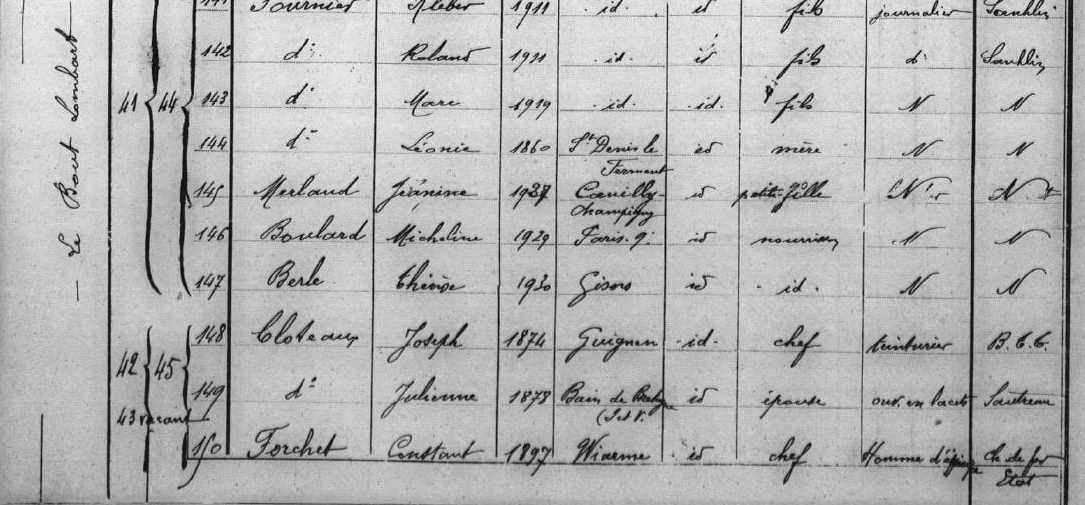 Le Bout Lambart
141 Fournier Kléber 1911 id. id fils journalier
142 d° Roland 1911 id. id fils d°
41 44 143 d° Marc 1919 id. id. fils N N
144 d° Léonie 1860 St Denis le Ferment id mère N N
145 Merland Jeánine 1927 Champigny id petite fille N N
146 Boulard Micheline 1929 Paris 9e id N N
147 Berle Thérèse 1930 Gisors id id. N N
42 45 148 Cloteaux Joseph 1874 Guignen id. chef teinturier B.T.C.
149 d° Julienne 1878 Bain de id épouse ouv. en lacets Sautreau
43 vacant
150 Forchet Constant 1897 Wiarme id chef Homme d'équipe Ch. de fer Etat